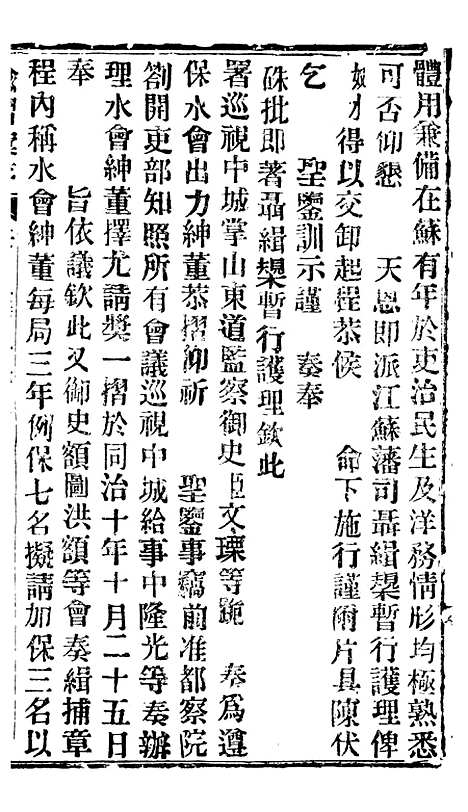 體用兼備在蘇有年於吏治民生及洋務情形均極熟悉
可否仰懇　天恩即派江蘇藩司聶緝槼暫行護理俾
奴才得以交卸起程恭候　命下施行謹附片具陳伏
乞　聖鑒訓示謹　奏奉
硃批即著聶緝槼暫行護理欽此
署巡視中城掌山東道監察御史臣文瑮等跪　奏為遵
保水會出力紳董恭摺仰祈　聖鑒事竊前准都察院
劄開吏部知照所有會議巡視中城給事中隆光等奏辦
理水會紳董擇尤請獎一摺於同治十年十月二十五日
奉　旨依議欽此又御史額圖洪額等會奏緝捕章
程內稱水會紳董每局三年例保七名擬請加保三名以